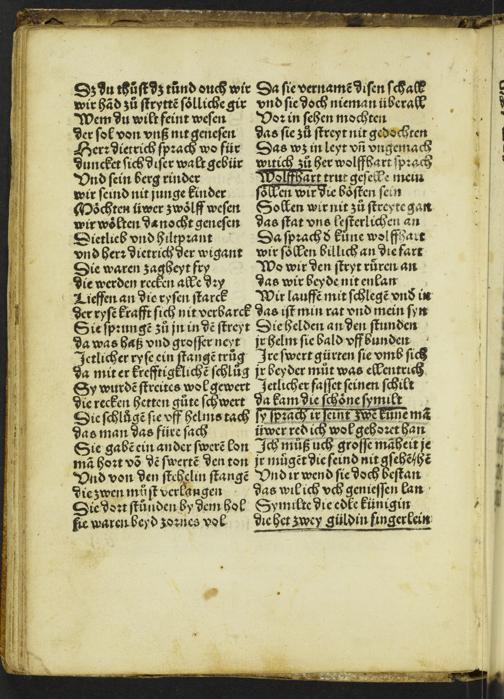 Dz du thůst dz tünd ouch wir
wir hãd zů stryttẽ sölliche gir
Wem du wilt feint wesen
der sol von vnß nit genesen
Herr dietrich sprach wo für
duncket sich diser walt gebür
Vnd sein berg rinder
wir seind nit junge kinder
Möchten üwer zwölff wesen
wir wölten dãnocht genesen
Dietlieb vnd hiltprant
vnd herr dietrich der wigant
Sie waren zagheyt fry
die werden recken alle dry
Lieffen an die rysen starck
der rysẽ krafft sich nit verbarck
Sie sprungẽ zů jn in dẽ streyt
da was haß vnd grosser neyt
Jetlicher ryse ein stangẽ trůg
da mit er krefftigklichẽ schlůg
Sy wurdẽ streites wol gewert
die recken hetten gůte schwert
Sie schlůgẽ sie vff helms tach
das man das füre sach
Sie gabẽ ein ander swerẽ lon
mã hort võ dẽ swertẽ den ton
Vnd von den stehelin stangẽ
die zwen můst verlangen
Sie dort stůnden by dem hol
sie waren beyd zornes vol
Da sie vernamẽ disen schall
vnd sie doch nieman überall
Vor in sehen mochten
das sie zů streyt nit gedochten
Das wz in leyt vñ vngemach
witich zů her wolffhart sprach
Wolffhart trut geselle mein
söllen wir die bösten sein
Sollen wir nit zů streyte gan
das stat vns lesterlichen an
Da sprach ð küne wolffhart
wir söllen billich an die fart
Wo wir den stryt rüren an
das wir beyde nit enlan
Wir lauffẽ mit schlegẽ vnd in
das ist min rat vnd mein syn
Die helden an den stunden
jr helm sie bald vff bunden
Ire swert gürten sie vmb sich
jr beyder můt was ellentrich
Jetlicher fasset seinen schilt
da kam die schöne symilt
sy sprach ir seint zwẽ küne mã
üwer red ich wol gehört han
Ich můß uch grosse mãheit je
jr mügẽt die seind nit
Vnd ir wend sie doch bestan
das wil ich vch geniessen lan
Symilte die edle künigin
die het zwey güldin fingerlein